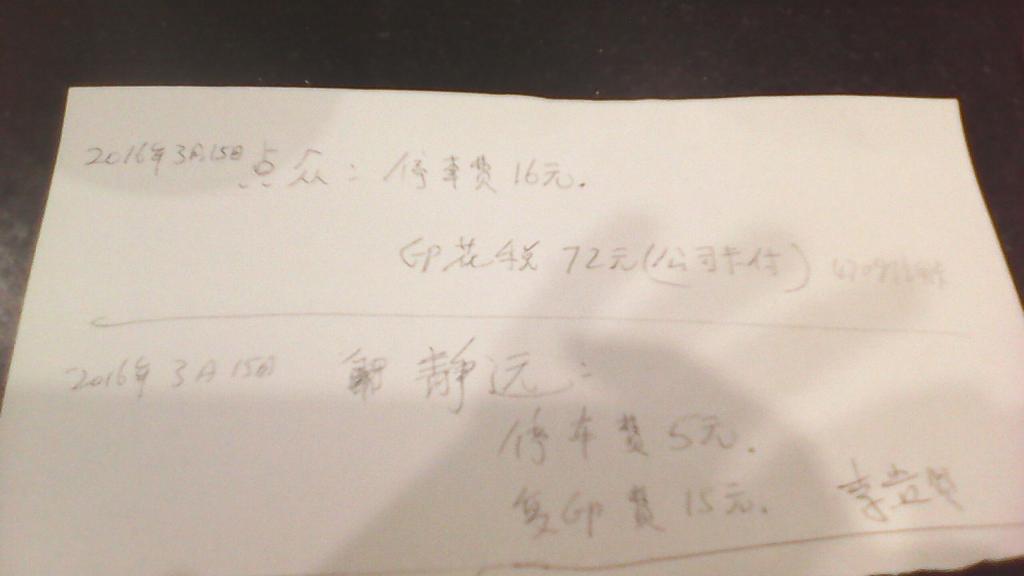 2016年3月15日 点众：停车费16元.
印花税 72元(公司卡付)
2016年3月15日 静远：
停车费5元.
复印费15元.